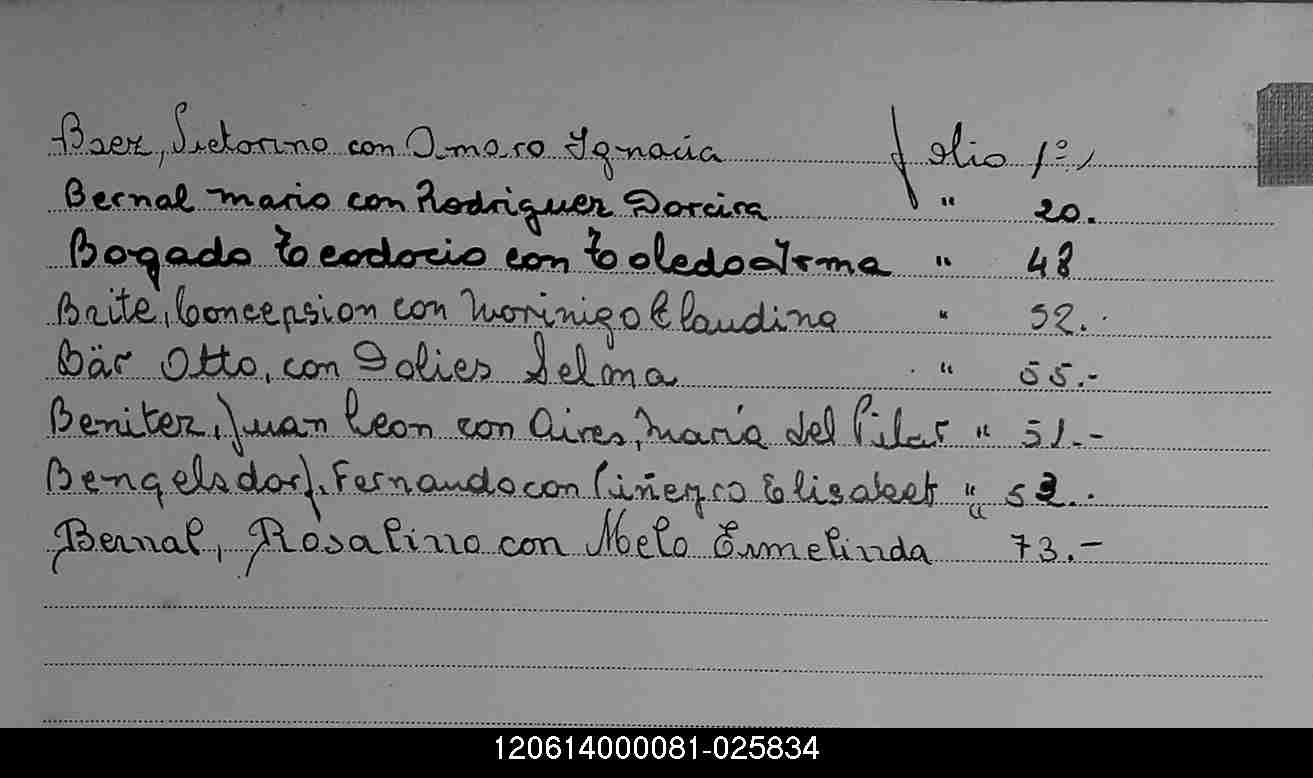 Baez, Sietorino con Amaro Ignacia folio 1º,
Bernal mario con Rodriguez Dorcira " 20.
Bogado Teodocio con Toledo Irma " 48
Brite, Concepsion con Morinigo Claudina " 52.-
Bär Otto, con Dolies Selma " 55.-
Benitez, Juan Leon con Aires, Maria del Pilar " 51.-
Bengelsdorf, Fernando con Piñeyro Elisabet " 53.-
Bernal, Rosalino con Melo Ermelinda 73.-
120614000081-025834